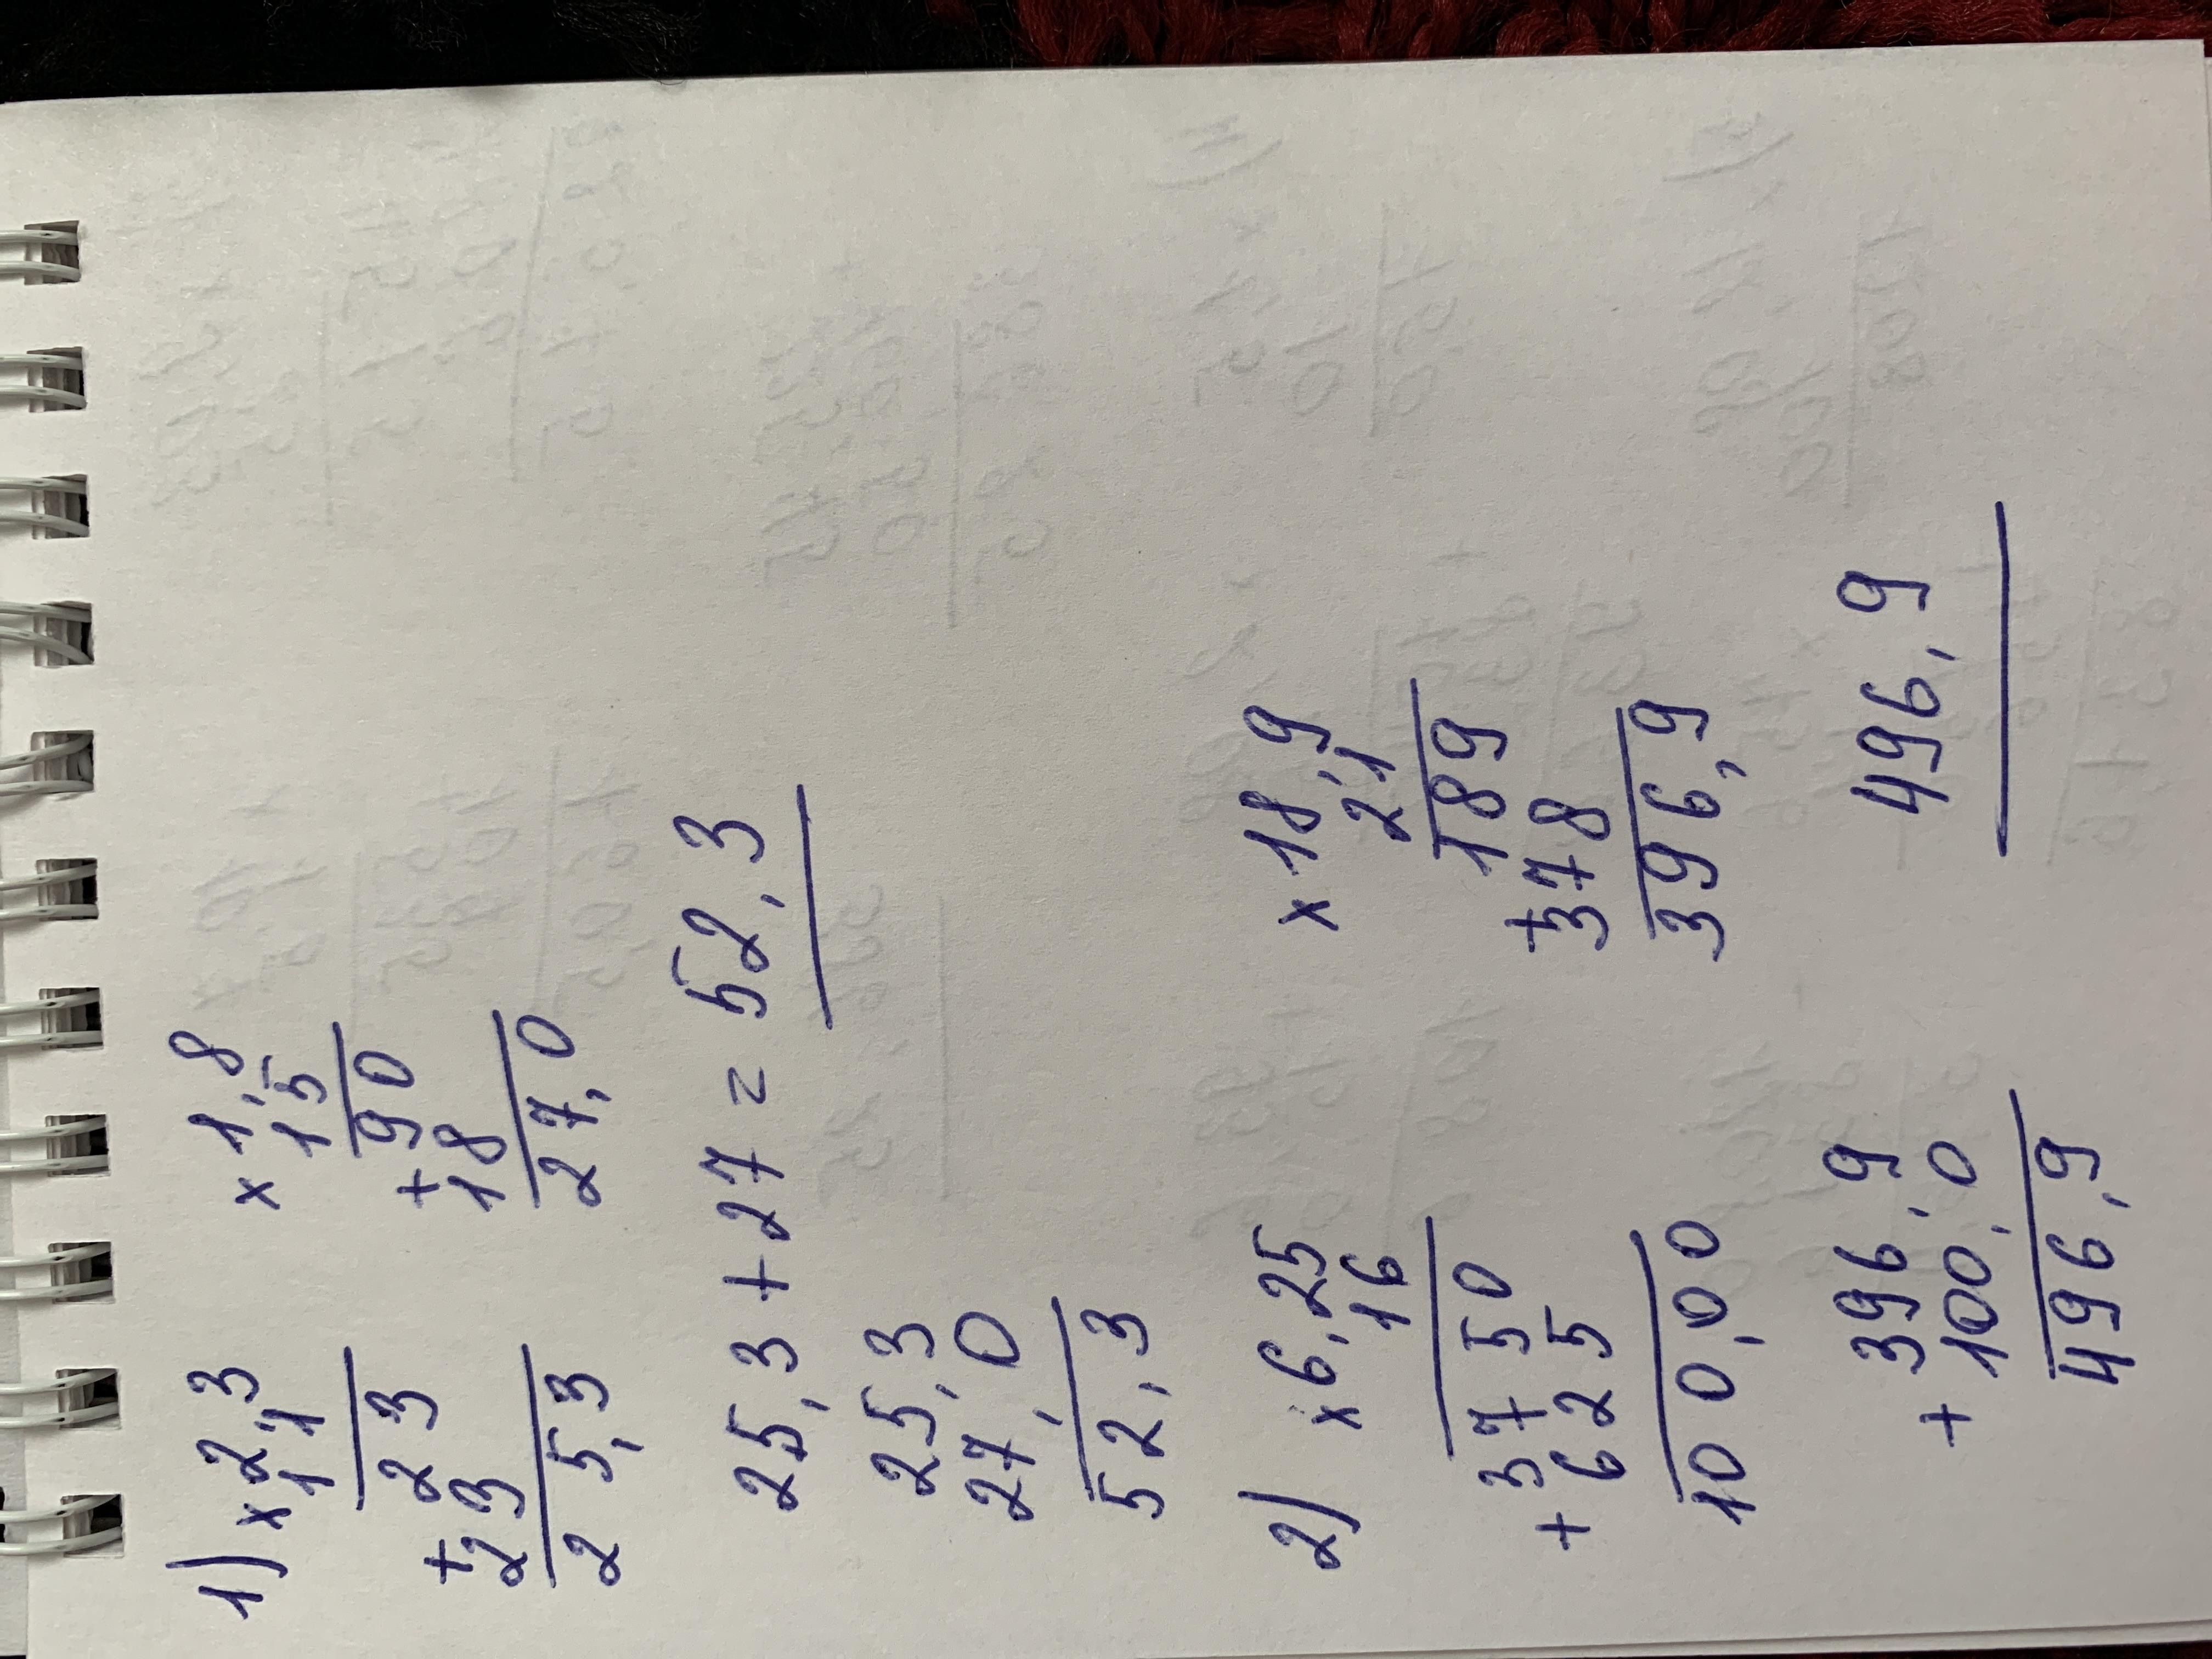 1) × 2,3
11
23
+ 23
25,3
× 1,8
15
90
+ 18
27,0
25,3 + 27 = 52,3
25,3
27,0
52,3
2) × 6,25
16
3750
+ 625
100,00
× 18,9
21
189
+ 378
396,9
+ 396,9
100,0
496,9
496,9